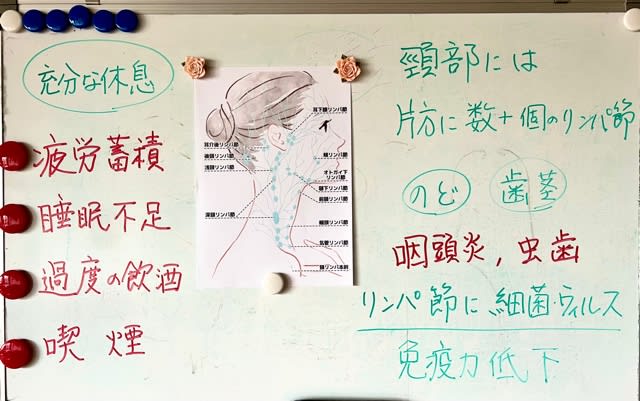 充分な休息
疲労蓄積
睡眠不足
過度の飲酒
喫煙
耳下腺リンパ節
耳介後リンパ節
後頭リンパ節
浅頸リンパ節
頬リンパ節
オトガイ下
リンパ節
顎下リンパ節
前頸リンパ節
深頸リンパ節
気管リンパ節
頸リンパ本幹
頸部には
片方に数十個のリンパ節
のど 歯茎
咽頭炎,虫歯
リンパ節に細菌・ウィルス
免疫力低下